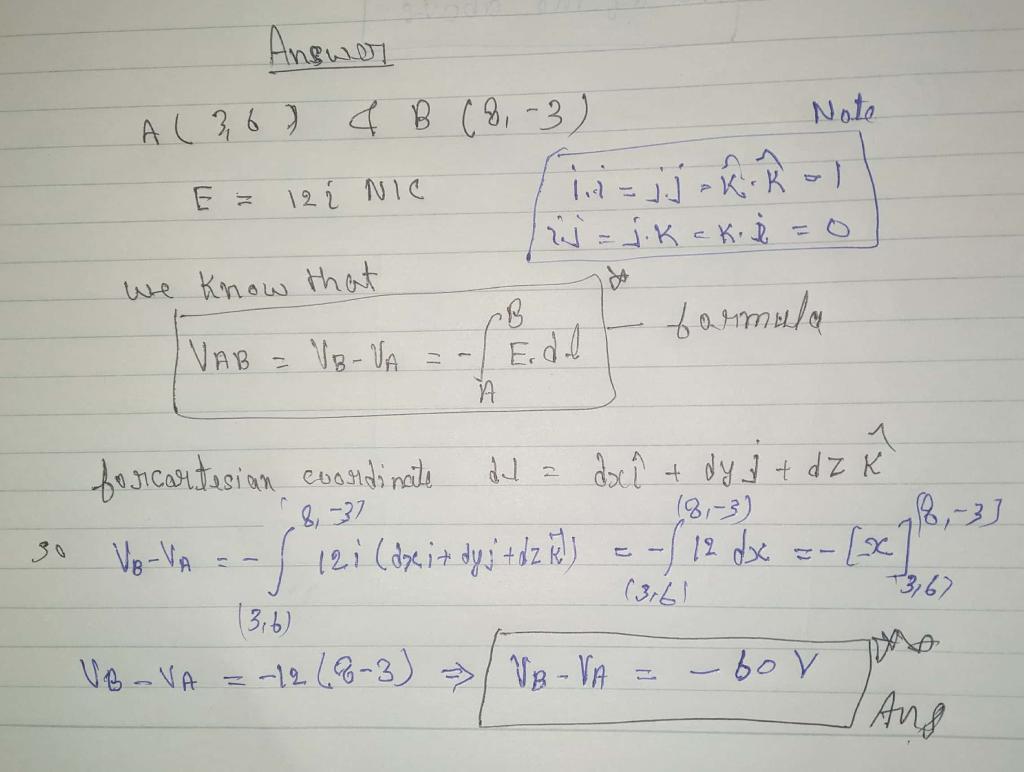 Answer
A (3, 6) & B (8, -3)
E = 12 i N/C
Note
i.i = j.j = k̂.k̂ = 1
i.j = j.k = k.i = 0
we know that
VAB = VB - VA = - ∫_A^B E.dl
formula
for cartesian coordinate dl = dxî + dyĵ + dz k̂
so VB - VA = - ∫_(3,6)^(8,-3) 12i (dxi + dyj + dz k̂) = - ∫_(3,6)^(8,-3) 12 dx = - [x]_(3,6)^(8,-3)
VB - VA = -12 (8-3) ⇒ VB - VA = - 60 V
Ans